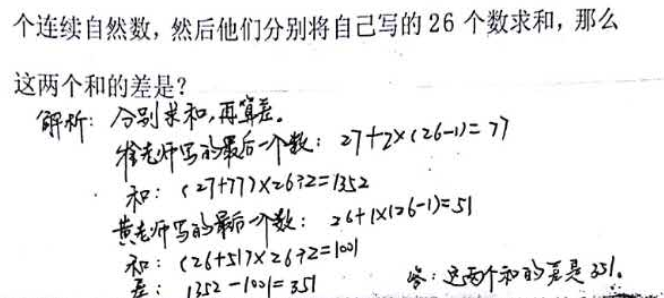 个连续自然数，然后他们分别将自己写的 26 个数求和，那么
这两个和的差是？
解析：分别求和，再算差。
徐老师写的最后一个数：27+2×(26-1)=77
和：(27+77)×26÷2=1352
黄老师写的最后一个数：26+1×(26-1)=51
和：(26+51)×26÷2=1001
差：1352-1001=351
答：这两个和的差是351。